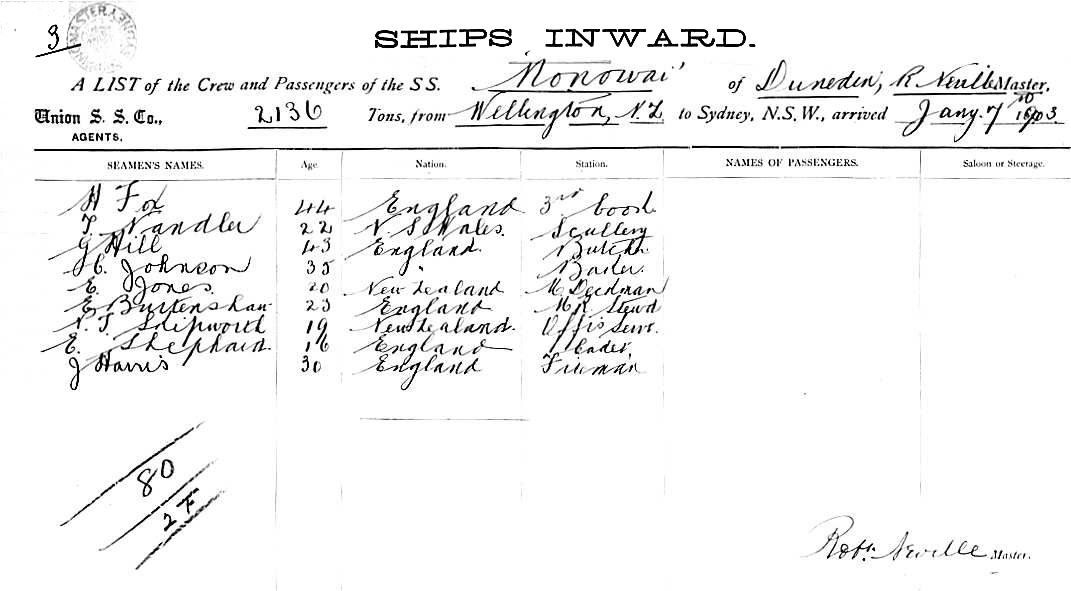 3
SHIPS INWARD.
A LIST of the Crew and Passengers of the SS. "Monowai" of Dunedin, R Neville Master,
Union S. S. Co., AGENTS. 2136 Tons, from Wellington, N.Z. to Sydney, N.S.W., arrived Jany. 7 1903
SEAMEN'S NAMES. Age Nation. Station. NAMES OF PASSENGERS. Saloon or Steerage.
H Fox 44 England 3rd Cook
T. Nandler 22 N. S Wales. Scullery
G Hill 43 England. Butcher
H. Johnson 35 " Baker.
E. Jones. 20 New Zealand M Deedman
E Burtenshaw 23 England M R Stewd
N. T. Skipworth 19 New Zealand. Offis Servt.
E. Shephard. 16 England Cadet,
J Harris 30 England Fireman
80
2 F
Robt. Neville Master.